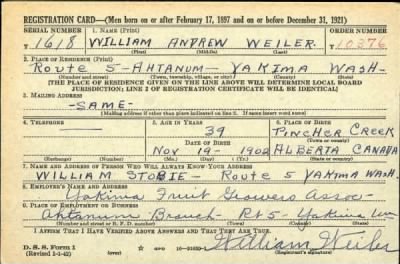 REGISTRATION CARD—(Men born on or after February 17, 1897 and on or before December 31, 1921)
SERIAL NUMBER 1. NAME (Print) ORDER NUMBER
T 1618 WILLIAM ANDREW WEILER. T 10376
(First) (Middle) (Last)
2. PLACE OF RESIDENCE (Print)
ROUTE 5 - AHTANUM - YAKIMA WASH-
(Number and street) (Town, township, village, or city) (County) (State)
[THE PLACE OF RESIDENCE GIVEN ON THE LINE ABOVE WILL DETERMINE LOCAL BOARD
JURISDICTION; LINE 2 OF REGISTRATION CERTIFICATE WILL BE IDENTICAL]
3. MAILING ADDRESS
-SAME-
[Mailing address if other than place indicated on line 2. If same insert word same]
4. TELEPHONE 5. AGE IN YEARS 6. PLACE OF BIRTH
— 39 PINCHER CREEK
DATE OF BIRTH (Town or county)
NOV 19 - 1902 ALBERTA CANADA
(Exchange) (Number) (Mo.) (Day) (Yr.) (State or country)
7. NAME AND ADDRESS OF PERSON WHO WILL ALWAYS KNOW YOUR ADDRESS
WILLIAM STOBIE - ROUTE 5 YAKIMA WASH.
8. EMPLOYER'S NAME AND ADDRESS
Yakima Fruit Growers Assoc-
9. PLACE OF EMPLOYMENT OR BUSINESS
Ahtanum Branch - Rt 5 - Yakima Wn
(Number and street or R. F. D. number) (Town) (County) (State)
I AFFIRM THAT I HAVE VERIFIED ABOVE ANSWERS AND THAT THEY ARE TRUE.
D. S. S. Form 1
(Revised 1-1-42) (over)
William Weiler
(Registrant's signature)